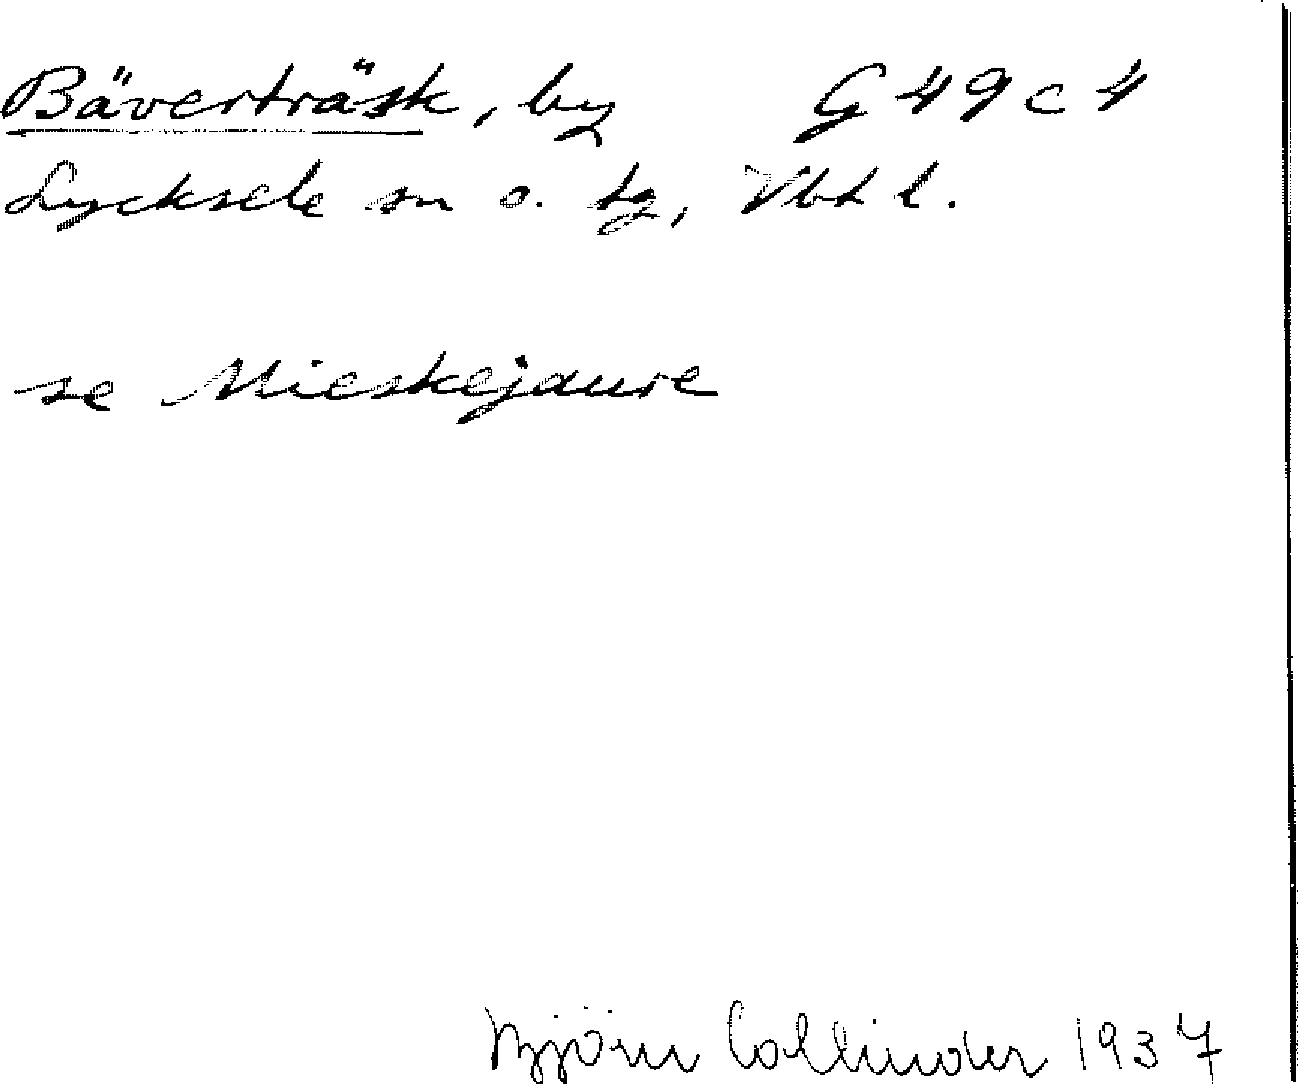 Bäverträsk, by G 49 c 4
Lycksele sn o. tg, Vbt l.
se Mieskejaure
Björn Collinder 1937